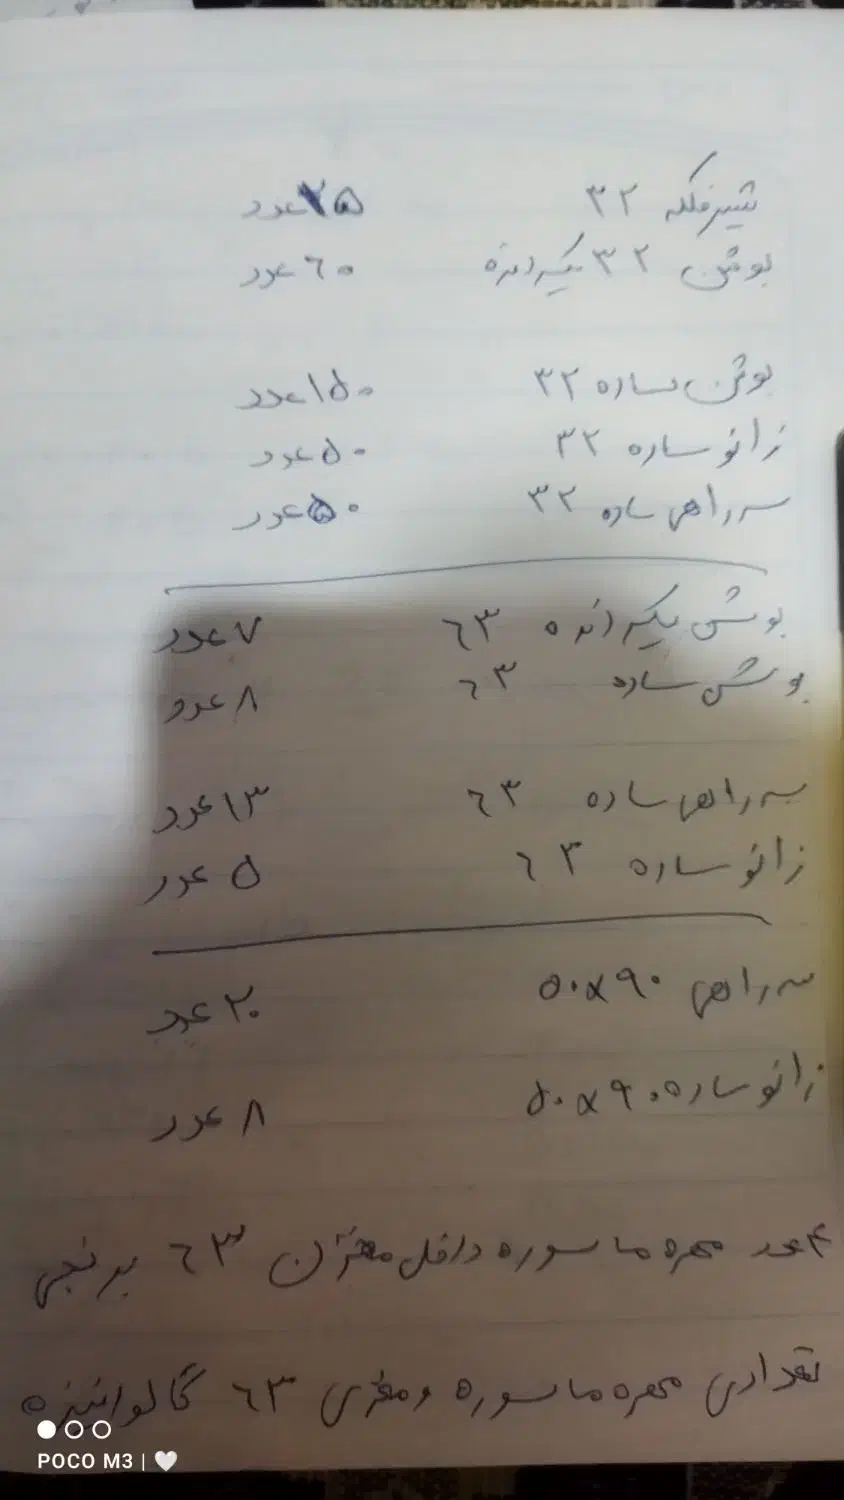 شیرفلکه ۳۲ ۲۵ عدد
بوشن ۳۲ یکسردنده ۶۰ عدد
بوشن ساده ۳۲ ۱۵۰ عدد
زانو ساده ۳۲ ۵۰ عدد
سه راهی ساده ۳۲ ۵۰ عدد
بوشن یکسردنده ۶۳ ۷ عدد
بوشن ساده ۶۳ ۸ عدد
سه راهی ساده ۶۳ ۱۳ عدد
زانو ساده ۶۳ ۵ عدد
سه راهی ۹۰×۵۰ ۲۰ عدد
زانو ساده ۹۰×۵۰ ۸ عدد
۴ عدد مهره ماسوره داخل مخزن ۶۳ برنجی
تعدادی مهره ماسوره و مغزی ۶۳ گالوانیزه
POCO M3 |